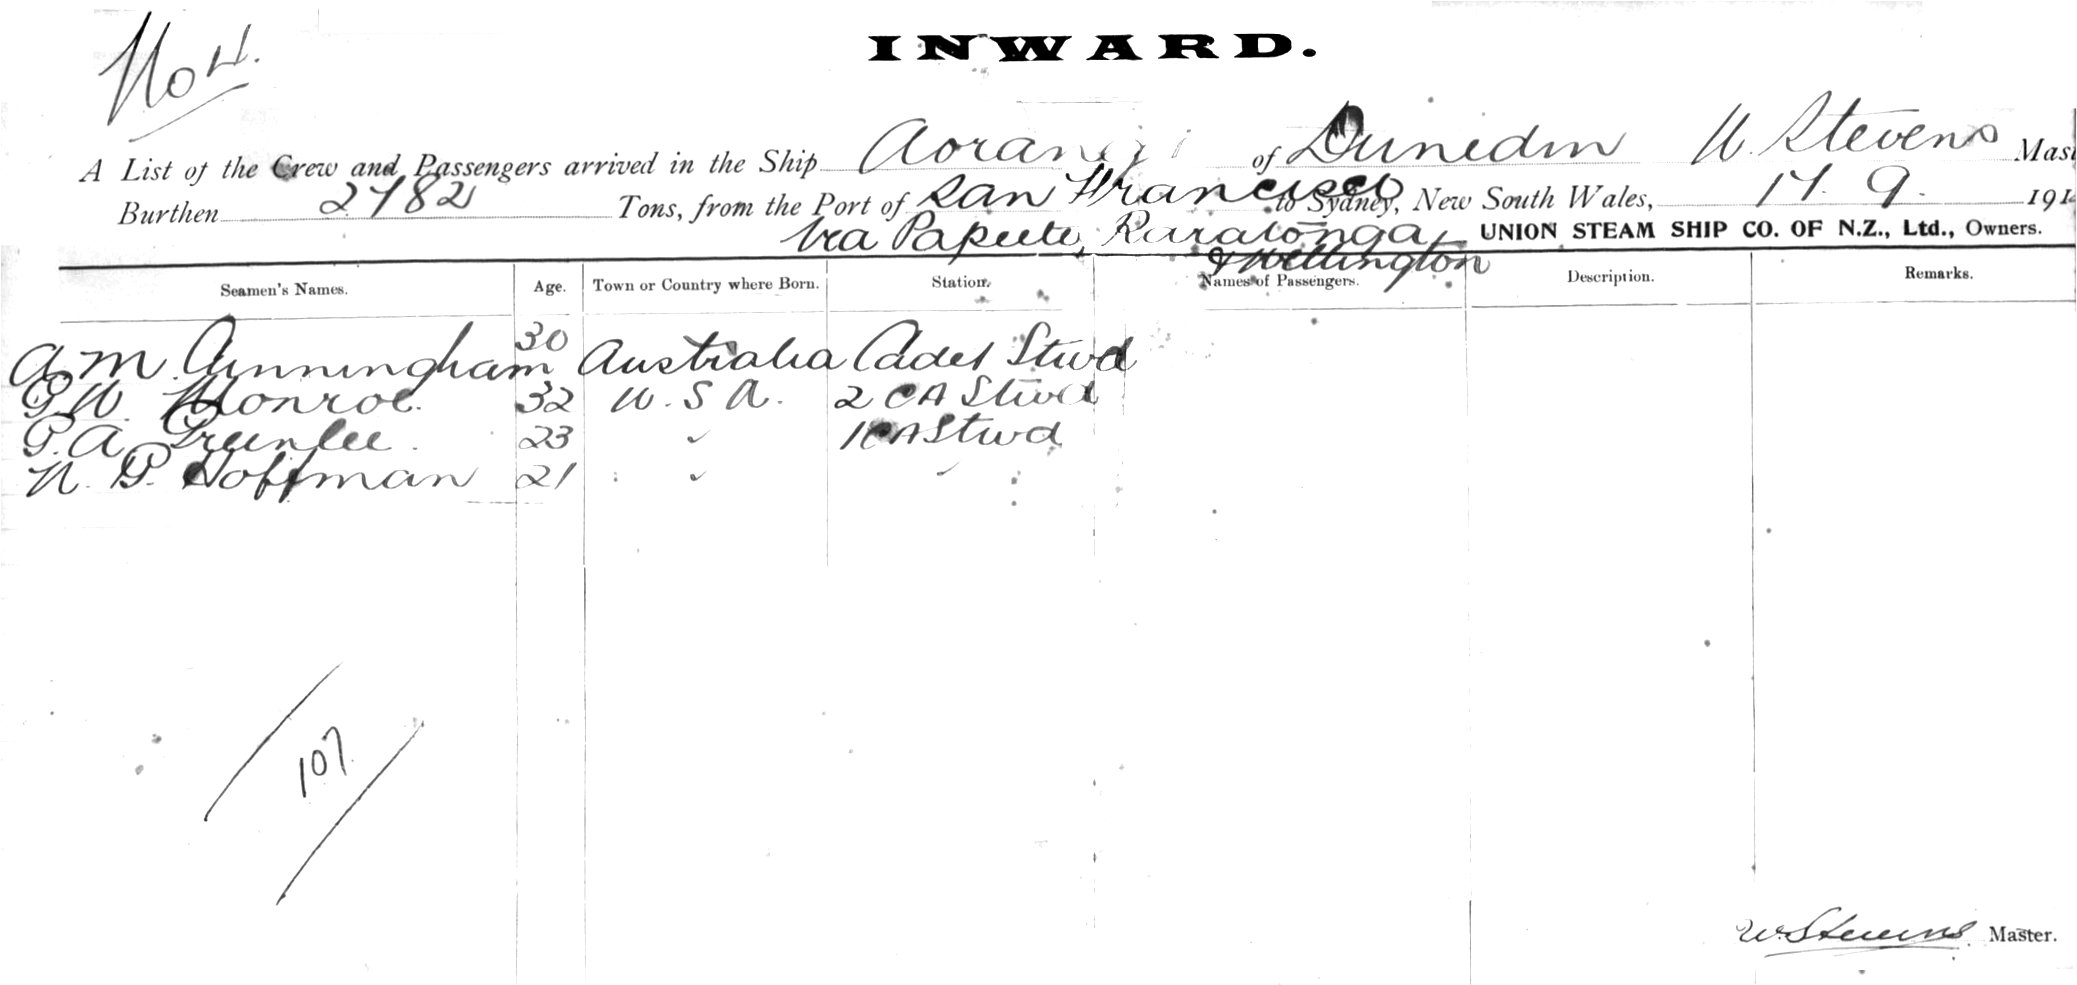 No 4.
INWARD.
A List of the Crew and Passengers arrived in the Ship Aorangi of Dunedin W. Stevens Mast
Burthen 2782 Tons, from the Port of San Francisco to Sydney, New South Wales, 17. 9. 191
Via Papeete, Raratonga, UNION STEAM SHIP CO. OF N.Z., Ltd., Owners.
& Wellington
Seamen's Names. Age. Town or Country where Born. Station. Names of Passengers. Description. Remarks.
A M Cunningham 30 Australia Cadet Stwd
G W. Monroe. 32 U. S A. 2 CA Stwd
P. A. Greenlee. 23 " 1 CA Stwd
N. G. Hoffman 21 " "
107
W. Stevens Master.